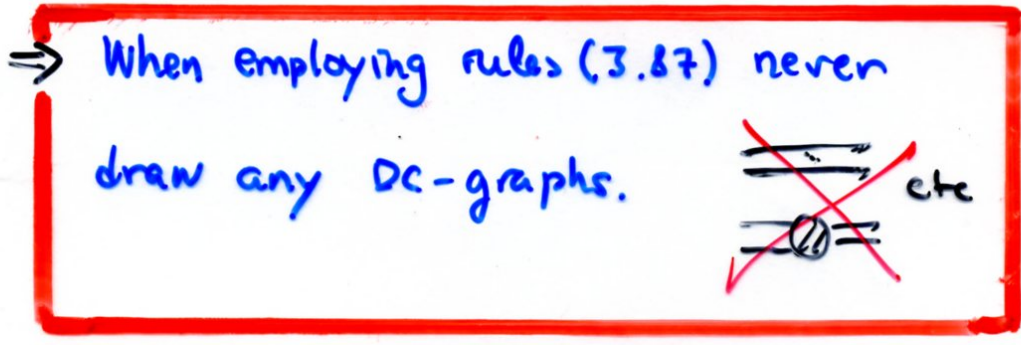 ⇒ When employing rules (3.87) never
draw any DC-graphs.
etc